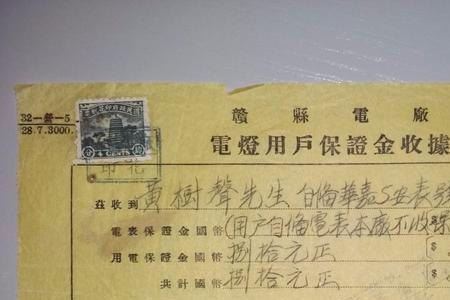 32—叁—5
28.7.3000.
國民政府印花稅票
4 CENTS
印花
贛縣電廠
電燈用戶保證金收據
茲收到 黃樹聲先生 自備華嘉5安表號
電表保證金國幣 (用戶自備電表本廠不收保
用電保證金國幣 捌拾元正 $
共計國幣 捌拾元正 $